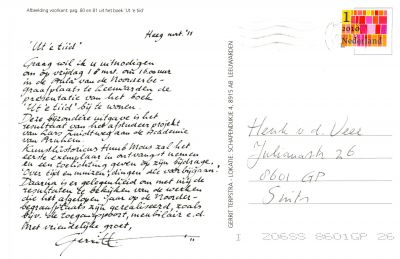 Afbeelding voorkant: pag. 80 en 81 uit het boek 'Ut 'e tiid'
Haag mrt. '11
'Ut 'e tiid'
Graag wil ik u uitnodigen
om op vrijdag 18 mrt. om 16.00 uur
in de 'Aula' van de Noorderbe-
graafplaats te Leeuwarden de
presentatie van het boek
'Ut 'e tiid' bij te wonen.
Deze bijzondere uitgave is het
resultaat van het afstudeer projekt
van Lars aan de Academie
van Arnhem.
Kunsthistoricus Huub Mous zal het
eerste exemplaar in ontvangst nemen
en een toelichting geven op zijn bijdrage:
'Over tijd en muizen, dingen die voorbijgaan.'
Daarna is er gelegenheid om met mij de
resultaten te bekijken van de werken
die het afgelopen jaar op de Noorder-
begraafplaats zijn gerealiseerd, zoals
bijv. de toegangspoort, meubilair e.d.
Met vriendelijke groet,
Gerrit
GERRIT TERPSTRA - LOKATIE: SCHAPENDIJKJE 4, 8915 AB LEEUWARDEN
1
2010
Nederland
Henk v.d. Veer
Julianastr. 26
8601 GP
Snits
I 206SS 8601GP 26